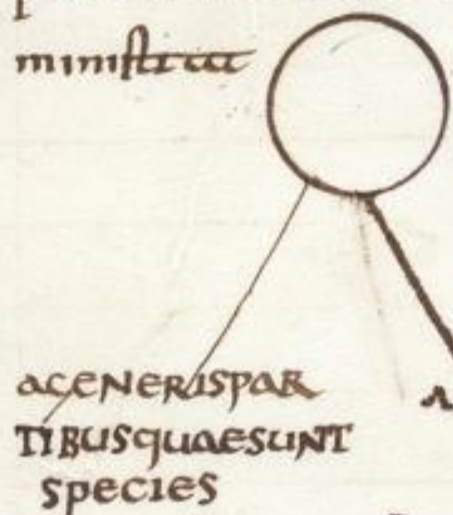 ministrat
AGENERISPAR
TIBUSQUAESUNT
SPECIES